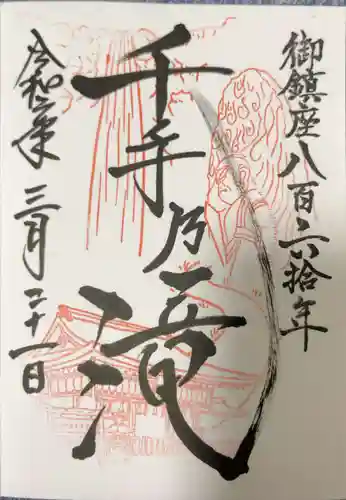 御鎮座八百六拾年
千手乃滝
令和二年三月二十一日